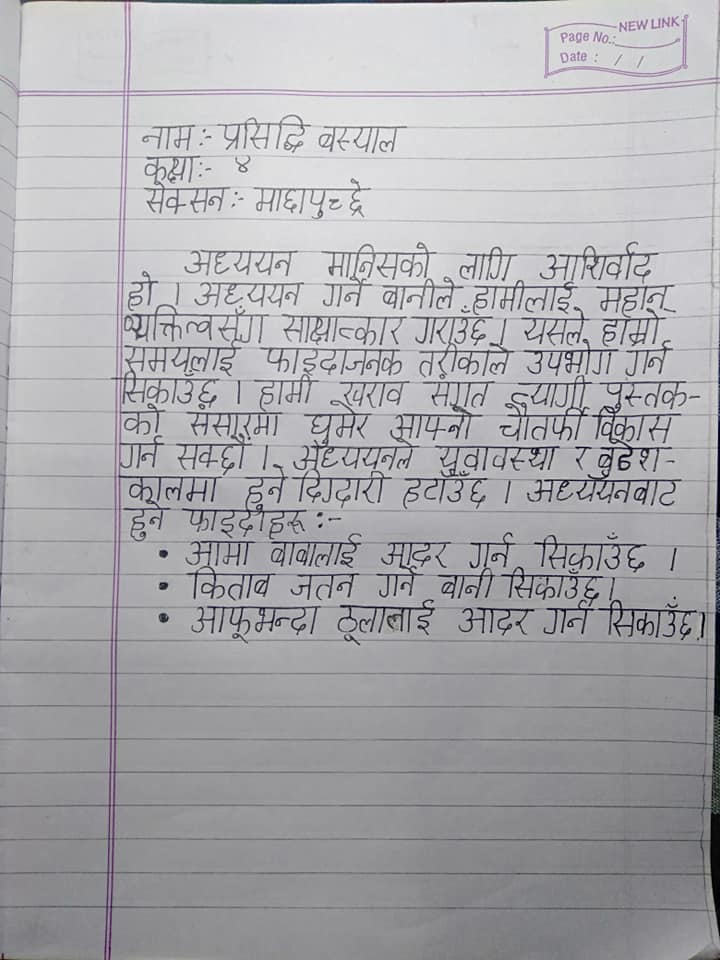 NEW LINK
Page No.:
Date : / /
नाम:- प्रसिद्धि बस्याल
कक्षा:- ४
सेक्सन:- माछापुच्छ्रे
अध्ययन मानिसको लागि आशिर्वाद
हो । अध्ययन गर्ने बानीले हामीलाई महान्
व्यक्तित्वसँग साक्षात्कार गराउँछ । यसले हाम्रो
समयलाई फाइदाजनक तरीकाले उपभोग गर्न
सिकाउँछ । हामी खराव संगत त्यागी पुस्तक-
को संसारमा घुमेर आफ्नो चौतर्फी विकास
गर्न सक्छौं । अध्ययनले युवावस्था र बुढेश-
कालमा हुने दिग्दारी हटाउँछ । अध्ययनबाट
हुने फाइदाहरू :-
• आमा बाबालाई आदर गर्न सिकाउँछ ।
• किताब जतन गर्ने बानी सिकाउँछ।
• आफूभन्दा ठूलालाई आदर गर्न सिकाउँछ।